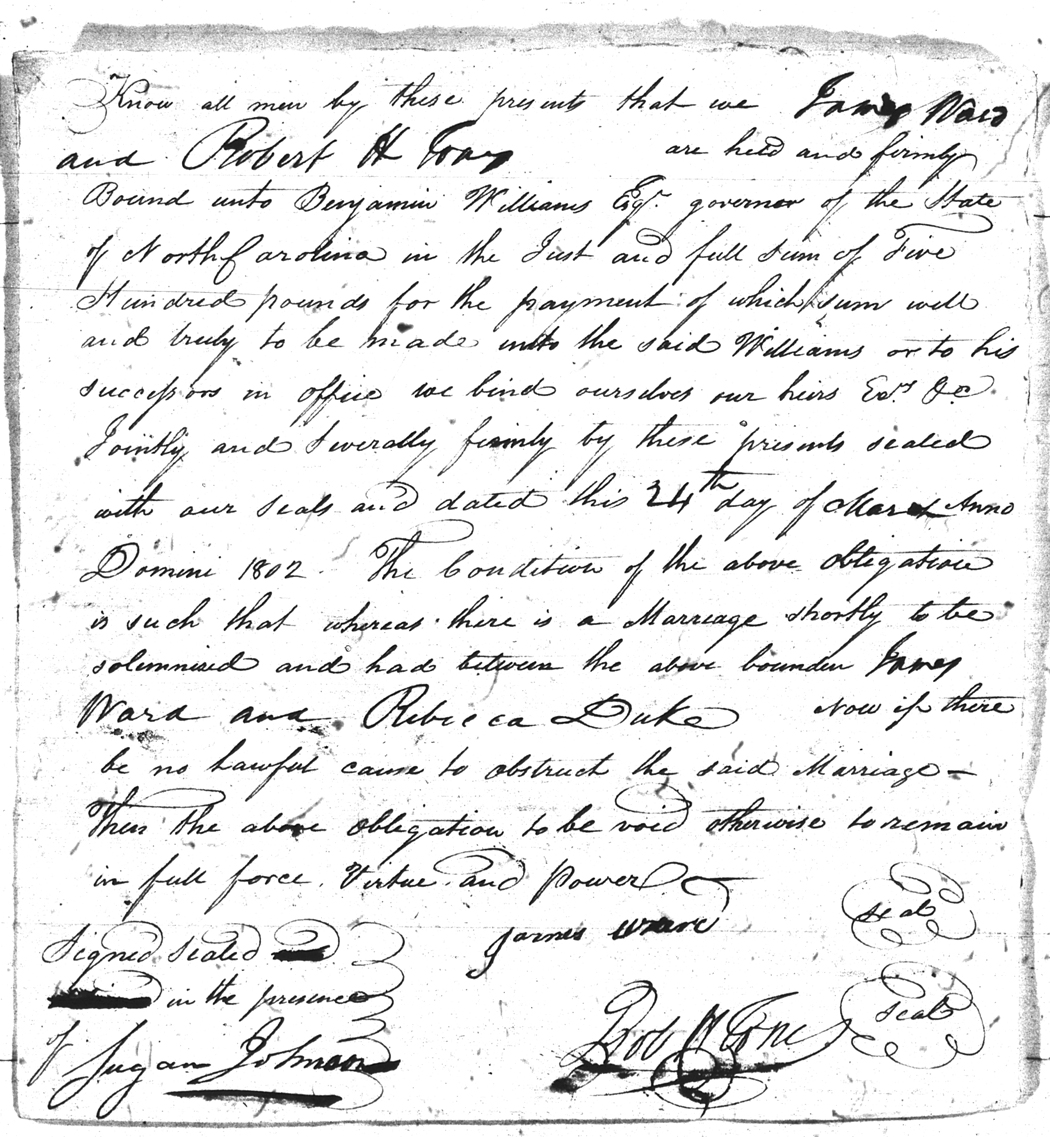 Know all men by these presents that we James Ward
and Robert H are held and firmly
Bound unto Benjamin Williams Esqr. governor of the State
of North Carolina in the Just and full sum of Five
Hundred pounds for the payment of which sum well
and truly to be made unto the said Williams or to his
successors in office we bind ourselves our heirs Exrs &c
Jointly and Severally firmly by these presents sealed
with our seals and dated this 24th day of Anno
Domini 1802. The Condition of the above obligation
is such that whereas there is a Marriage shortly to be
solemnised and had between the above bounden James
Ward and Rebecca Duke Now if there
be no Lawful cause to obstruct the said Marriage —
Then the above obligation to be void otherwise to remain
in full force. Virtue and Power
James Ward seal
Signed sealed
in the presence
Rob H seal
of Johnson